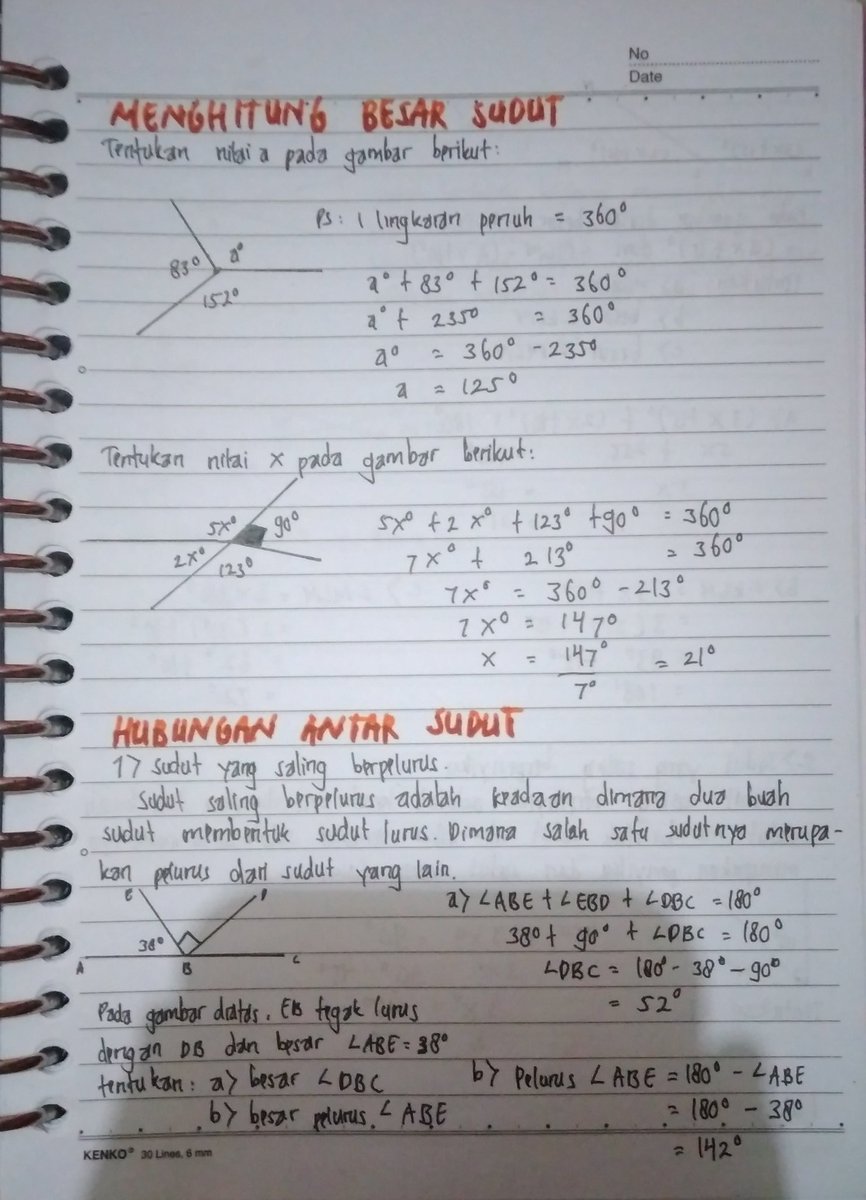 No
Date
MENGHITUNG BESAR SUDUT
Tentukan nilai a pada gambar berikut:
Ps: 1 lingkaran penuh = 360°
83° a°
152°
a° + 83° + 152° = 360°
a° + 235° = 360°
a° = 360° - 235°
a = 125°
Tentukan nilai x pada gambar berikut:
5x° 90°
2x° 123°
5x° + 2x° + 123° + 90° = 360°
7x° + 213° = 360°
7x° = 360° - 213°
7x° = 147°
x = 147°/7° = 21°
HUBUNGAN ANTAR SUDUT
1) sudut yang saling berpelurus.
Sudut saling berpelurus adalah keadaan dimana dua buah
sudut membentuk sudut lurus. Dimana salah satu sudutnya merupa-
kan pelurus dari sudut yang lain.
E D
38°
A B C
a) ∠ABE + ∠EBD + ∠DBC = 180°
38° + 90° + ∠DBC = 180°
∠DBC = 180° - 38° - 90°
= 52°
Pada gambar diatas. EB tegak lurus
dengan DB dan besar ∠ABE = 38°
tentukan: a) besar ∠DBC
b) besar pelurus ∠ABE
b) Pelurus ∠ABE = 180° - ∠ABE
= 180° - 38°
= 142°
KENKO® 30 Lines, 6 mm